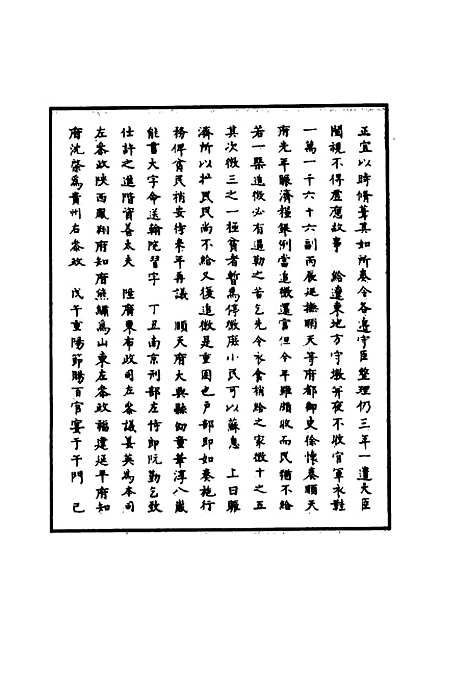 正宜以時脩葺其如所奏令各邊守臣整理仍三年一遣大臣
閱視不得虛應故事　給遼東地方守墩并夜不收官軍衣鞋
一萬一千六十六副丙辰巡撫順天等府都御史徐懷奏順天
府先年賑濟糧銀例當追徵還官但今年雖頗收而民猶不給
若一槩追徵必有逼勒之苦乞先令衣食稍給之家徵十之五
其次徵三之一極貧者暫爲停徵庶小民可以蘇息　上曰賑
濟所以扩民民尚不給又復追徵是重困也户部即如奏施行
務俾貧民稍安待來年再議　順天府大興縣幼童葉淳八歲
能書大字命送翰院習字　丁丑南京刑部左侍郎阮勤乞致
仕許之進階資善太夫　陞廣東布政司左叅議姜英爲本司
左叅政陝西鳳翔府知府熊繡爲山東左叅政福建延平府知
府沈棨爲貴州右叅政　戊午重陽節賜百官宴于午門　己